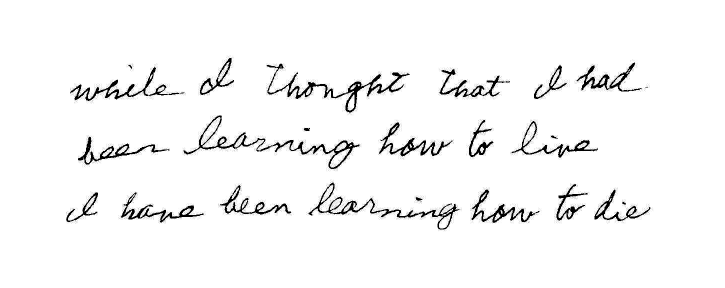 while I thought that I had
been learning how to live
I have been learning how to die